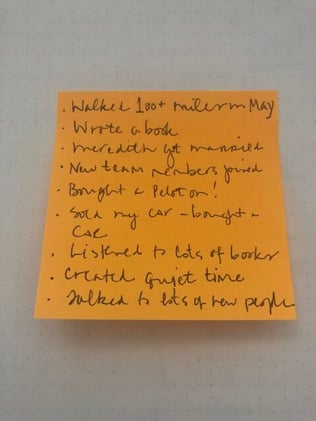 · Walked 100+ miles in May
· Wrote a book
· Meredith got married
· New team members joined
· Bought a Peloton!
· Sold my car - bought a
car
· Listened to lots of books
· Created quiet time
· Talked to lots of new people